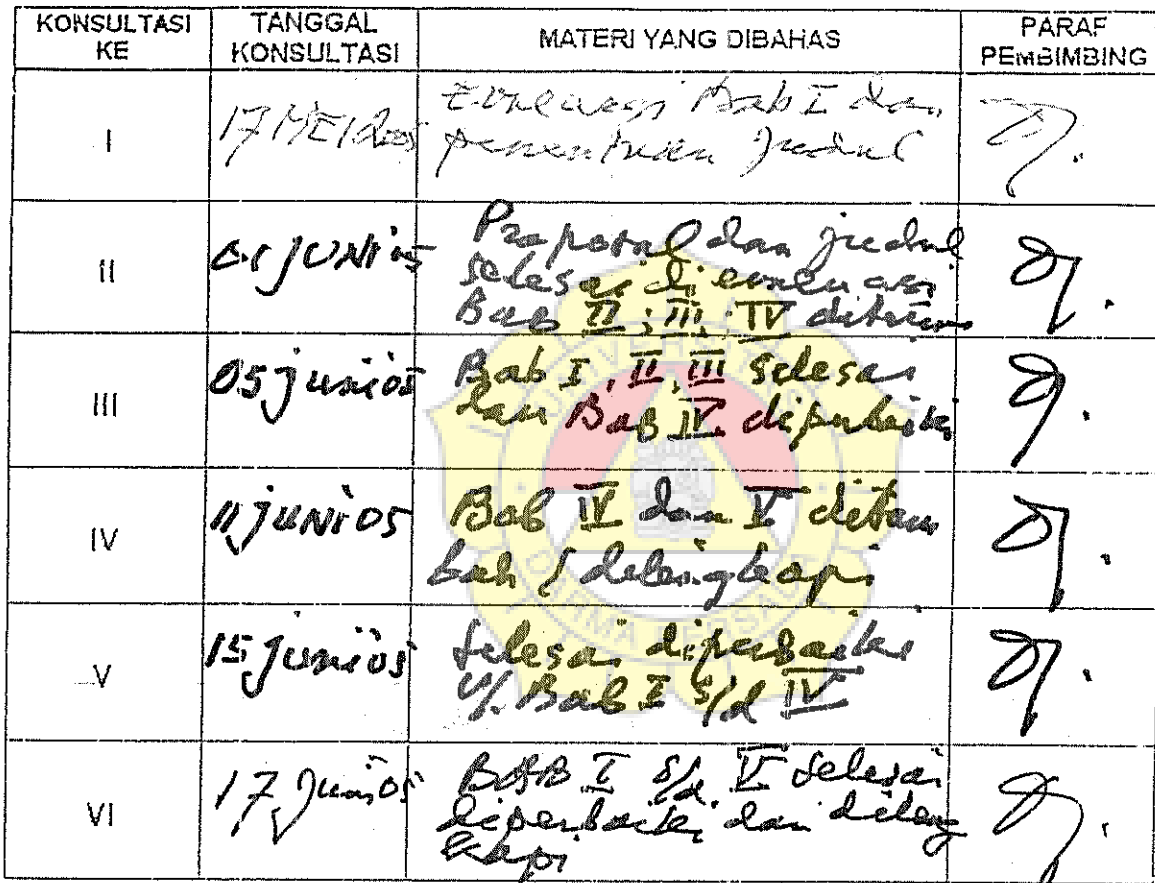 KONSULTASI KE
TANGGAL KONSULTASI
MATERI YANG DIBAHAS
PARAF PEMBIMBING
I
17 MEI 2005
Evaluasi Bab I dan
penentuan judul
II
JUNI 05
Proposal dan judul
selesai di evaluasi
Bab II ; III ; IV diterima
III
05 juni 05
Bab I, II, III selesai
dan Bab IV diperbaiki
IV
11 JUNI 05
Bab IV dan V ditam
bah / dilengkapi
V
15 juni 05
selesai diperbaiki
u/. Bab I s/d IV
VI
17 Juni 05
BAB I s/d V selesai
diperbaiki dan dileng
kapi
UNIVERSITAS
DARMA PERSADA